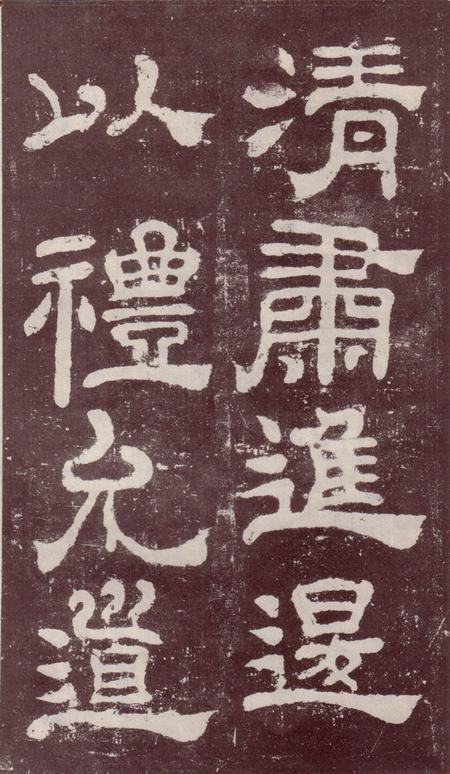 清肅進退
以禮允道